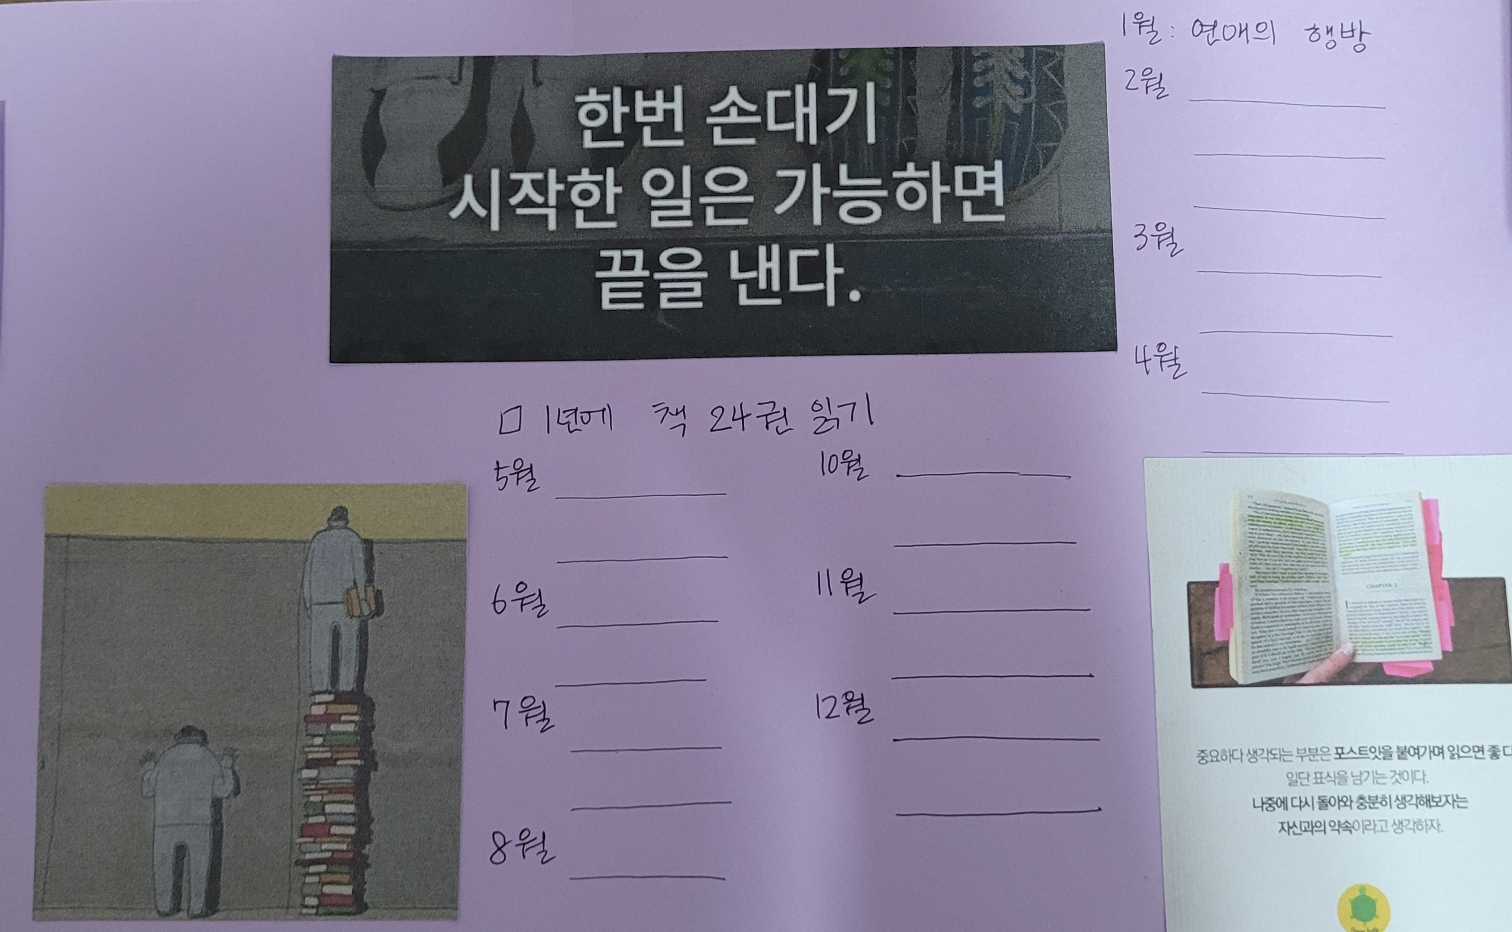 한번 손대기
시작한 일은 가능하면
끝을 낸다.
1월: 연애의 행방
2월
3월
4월
□ 1년에 책 24권 읽기
5월
6월
7월
8월
10월
11월
12월
CHAPTER 2
중요하다 생각되는 부분은 포스트잇을 붙여가며 읽으면 좋다
일단 표식을 남기는 것이다.
나중에 다시 돌아와 충분히 생각해보자는
자신과의 약속이라고 생각하자.